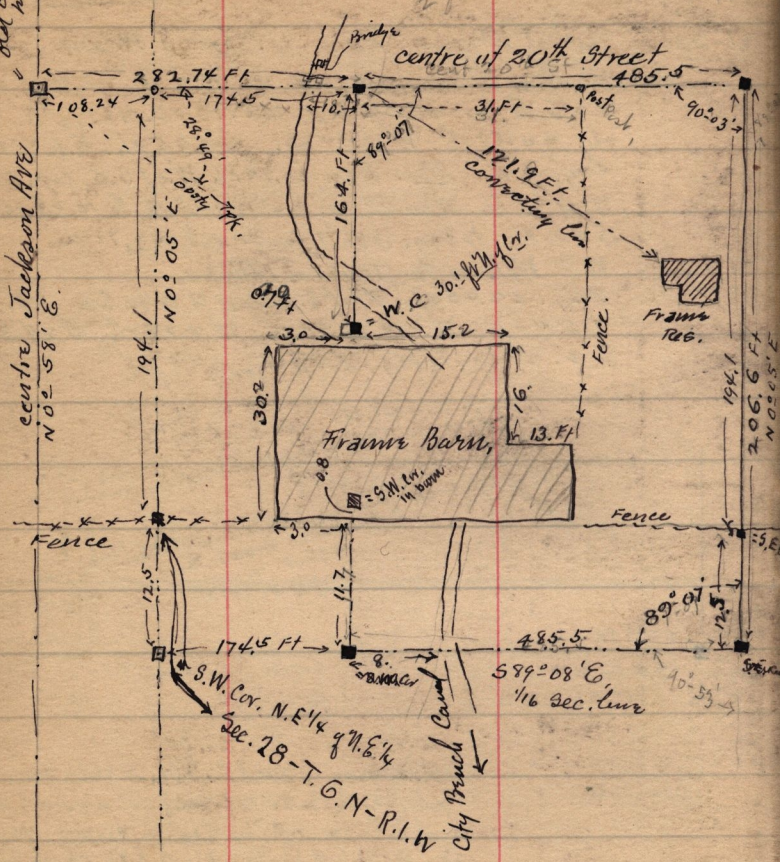 old
Bridge
centre of 20th Street
282.74 Ft
485.5
108.24
174.5
10.
31 Ft
Post
90°-03'
89°-07'
28°-49'
164. Ft
121.9 Ft
connecting line
centre Jackson Ave
N 0° 58' E.
194.1
N 0° 05' E
W.C 30.1 ft N. of Cor.
0.7 Ft
3.0
15.2
Fence.
Frame
Res.
194.1
206.6 Ft
N 0° 05' E
30.2
16.
Frame Barn,
13. Ft
0.8
= S.W. Cor.
in barn
3.0
Fence
Fence
= S.E.
12.5
11.7
89°-07'
12.5
174.5 Ft
8.
485.5
S 89° 08' E
1/16 Sec. line
90°-53'
S.W. Cor. N.E 1/4 of N.E. 1/4
Sec. 28-T. 6. N-R. 1. W
City Bench Canal